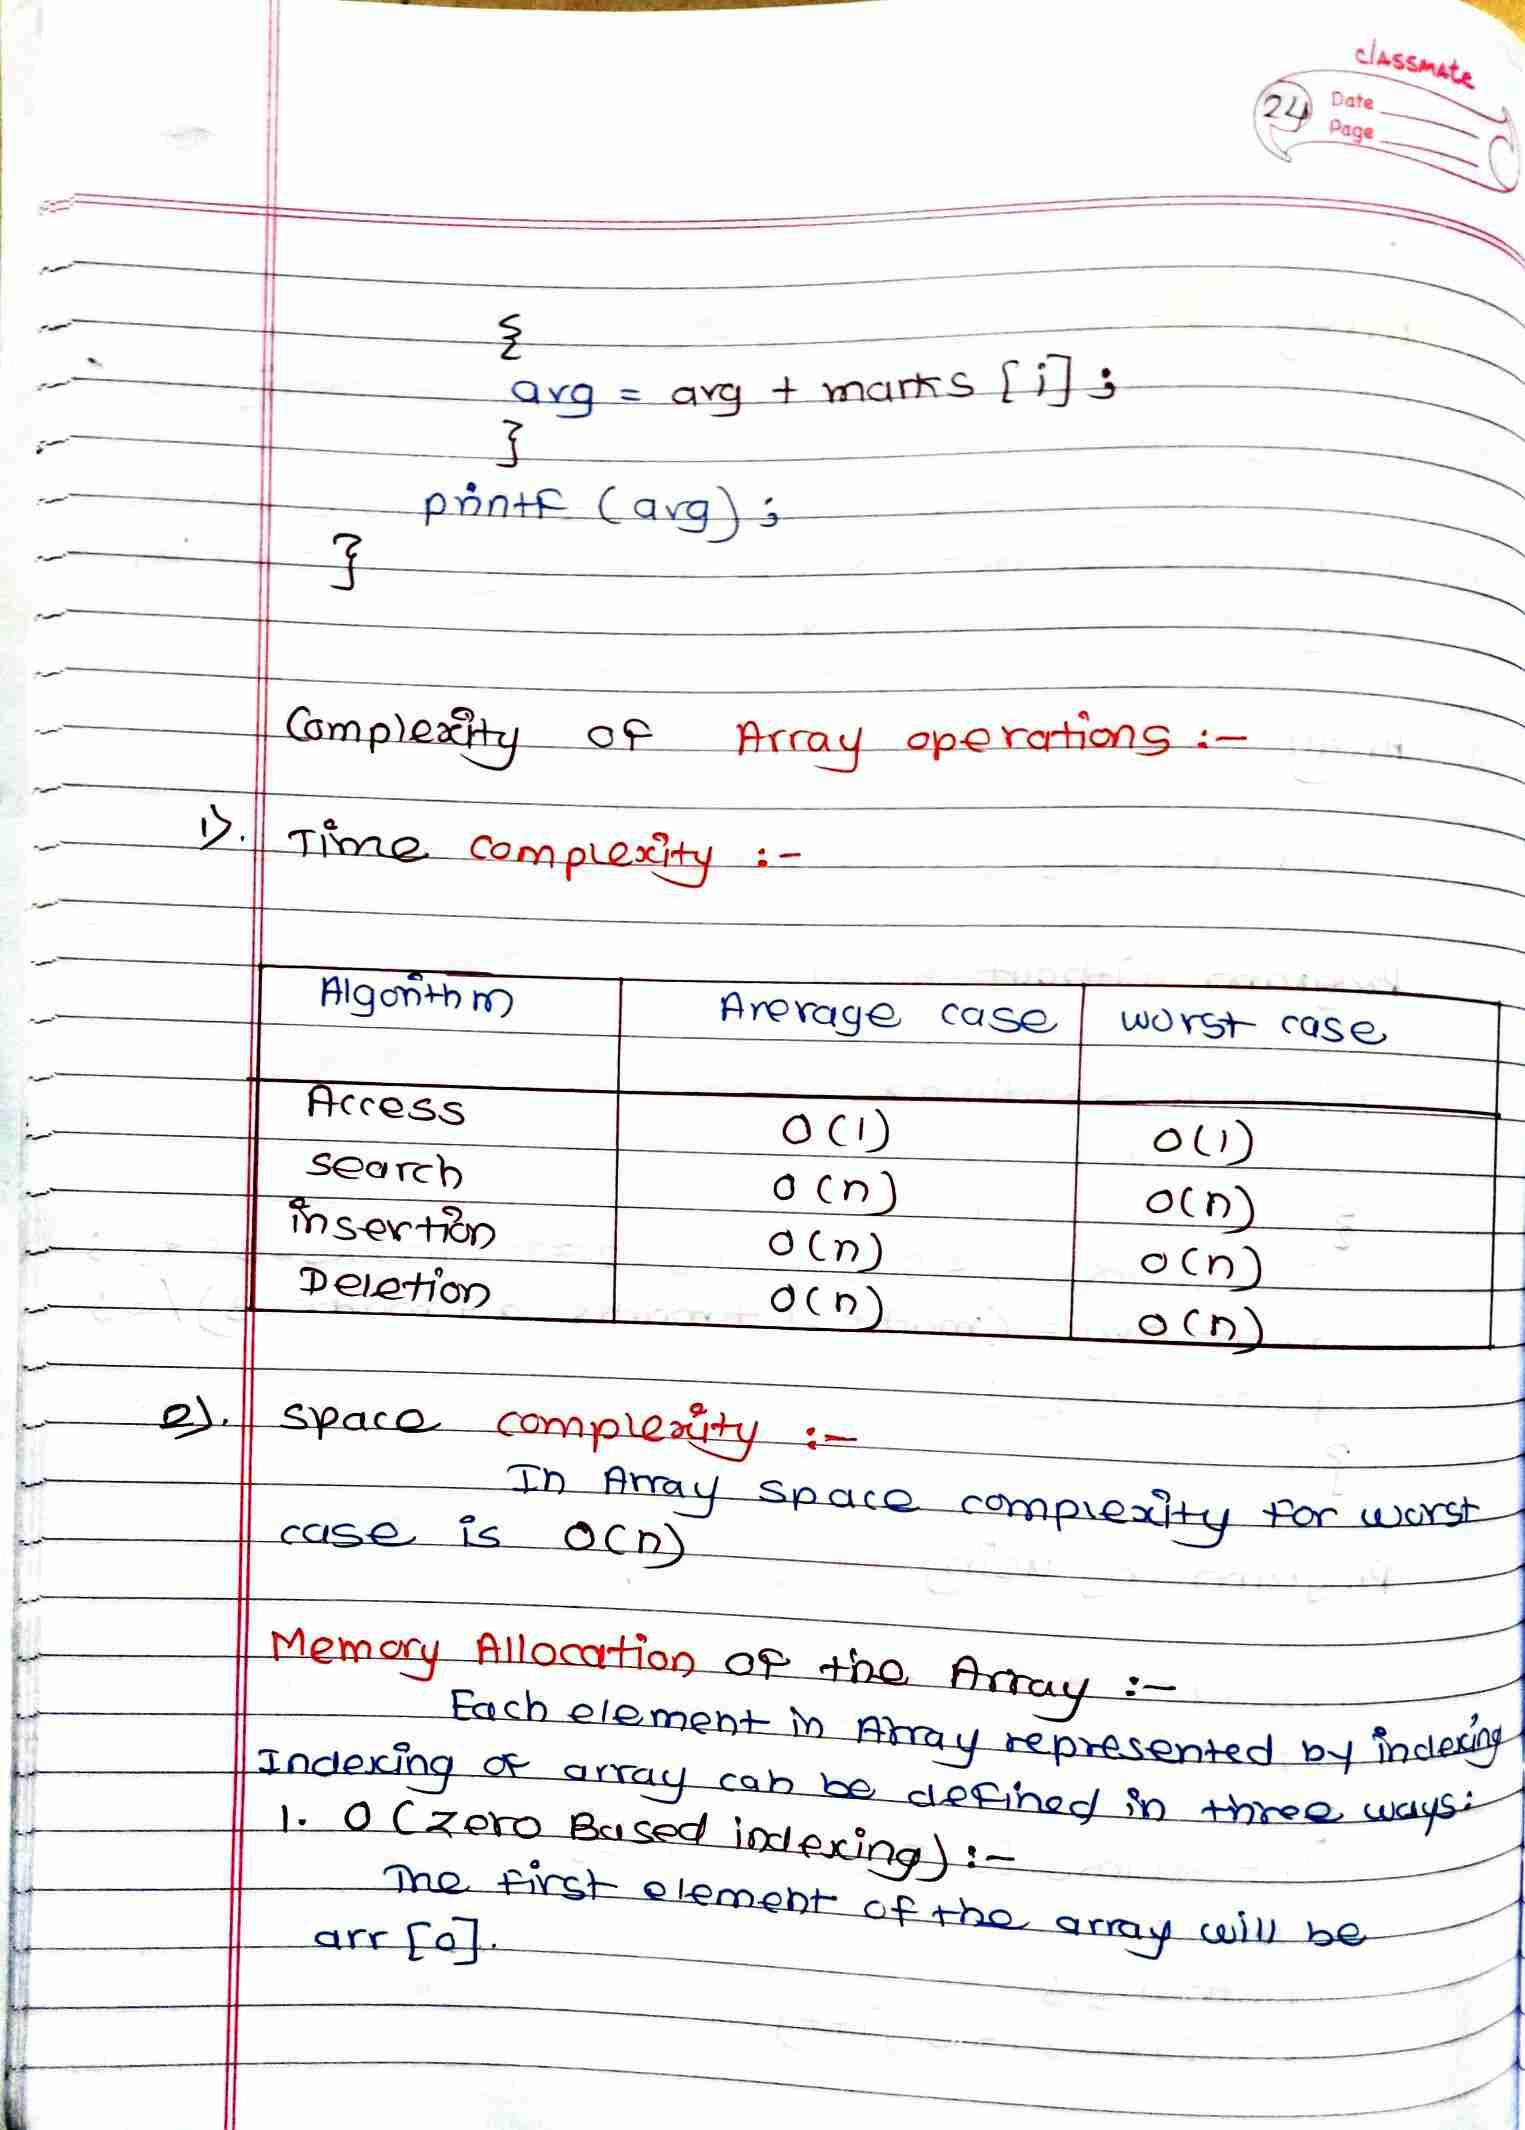 classmate
24 Date
Page
{
avg = avg + marks [i];
}
printf (avg);
}
Complexity of Array operations :-
1). Time complexity :-
Algorithm Average case worst case
Access O(1) O(1)
search O(n) O(n)
insertion O(n) O(n)
Deletion O(n) O(n)
2). space complexity :-
In Array space complexity for worst
case is O(n)
Memory Allocation of the Array :-
Each element in Array represented by indexing
Indexing of array can be defined in three ways:
1. 0 (Zero Based indexing) :-
The first element of the array will be
arr [0].